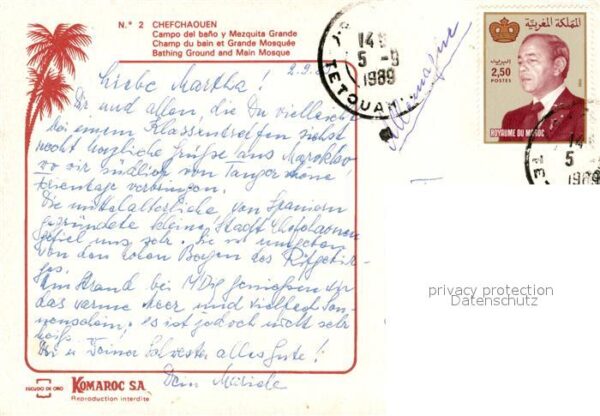 N.° 2 CHEFCHAOUEN
Campo del baño y Mezquita Grande
Champ du bain et Grande Mosquée
Bathing Ground and Main Mosque
Liebe Martha! 2.9.
Dir und allen, die Du vielleicht
bei einem Klassentreffen siehst
recht herzliche Grüße aus Marokko
wo wir südlich von Tanger schöne
Ferientage verbringen.
Die mittelalterliche von Spaniern
gegründete kleine Stadt Chefchaouen
gefiel uns sehr. Sie ist umgeben
von den hohen Bergen des Rifgebir-
ges.
Am Strand bei genießen wir
das warme Meer und vielfach Son-
nenschein; es ist jedoch nicht sehr
heiß.
Dir u. Deiner Schwester alles Gute!
Dein
ESCUDO DE ORO
KOMAROC S.A.
Reproduction interdite
14
5 -9
1989
TETOUAN
Allemagne
المملكة المغربية
البريد
2,50
POSTES
ROYAUME DU MAROC
14
5
1989
privacy protection
Datenschutz